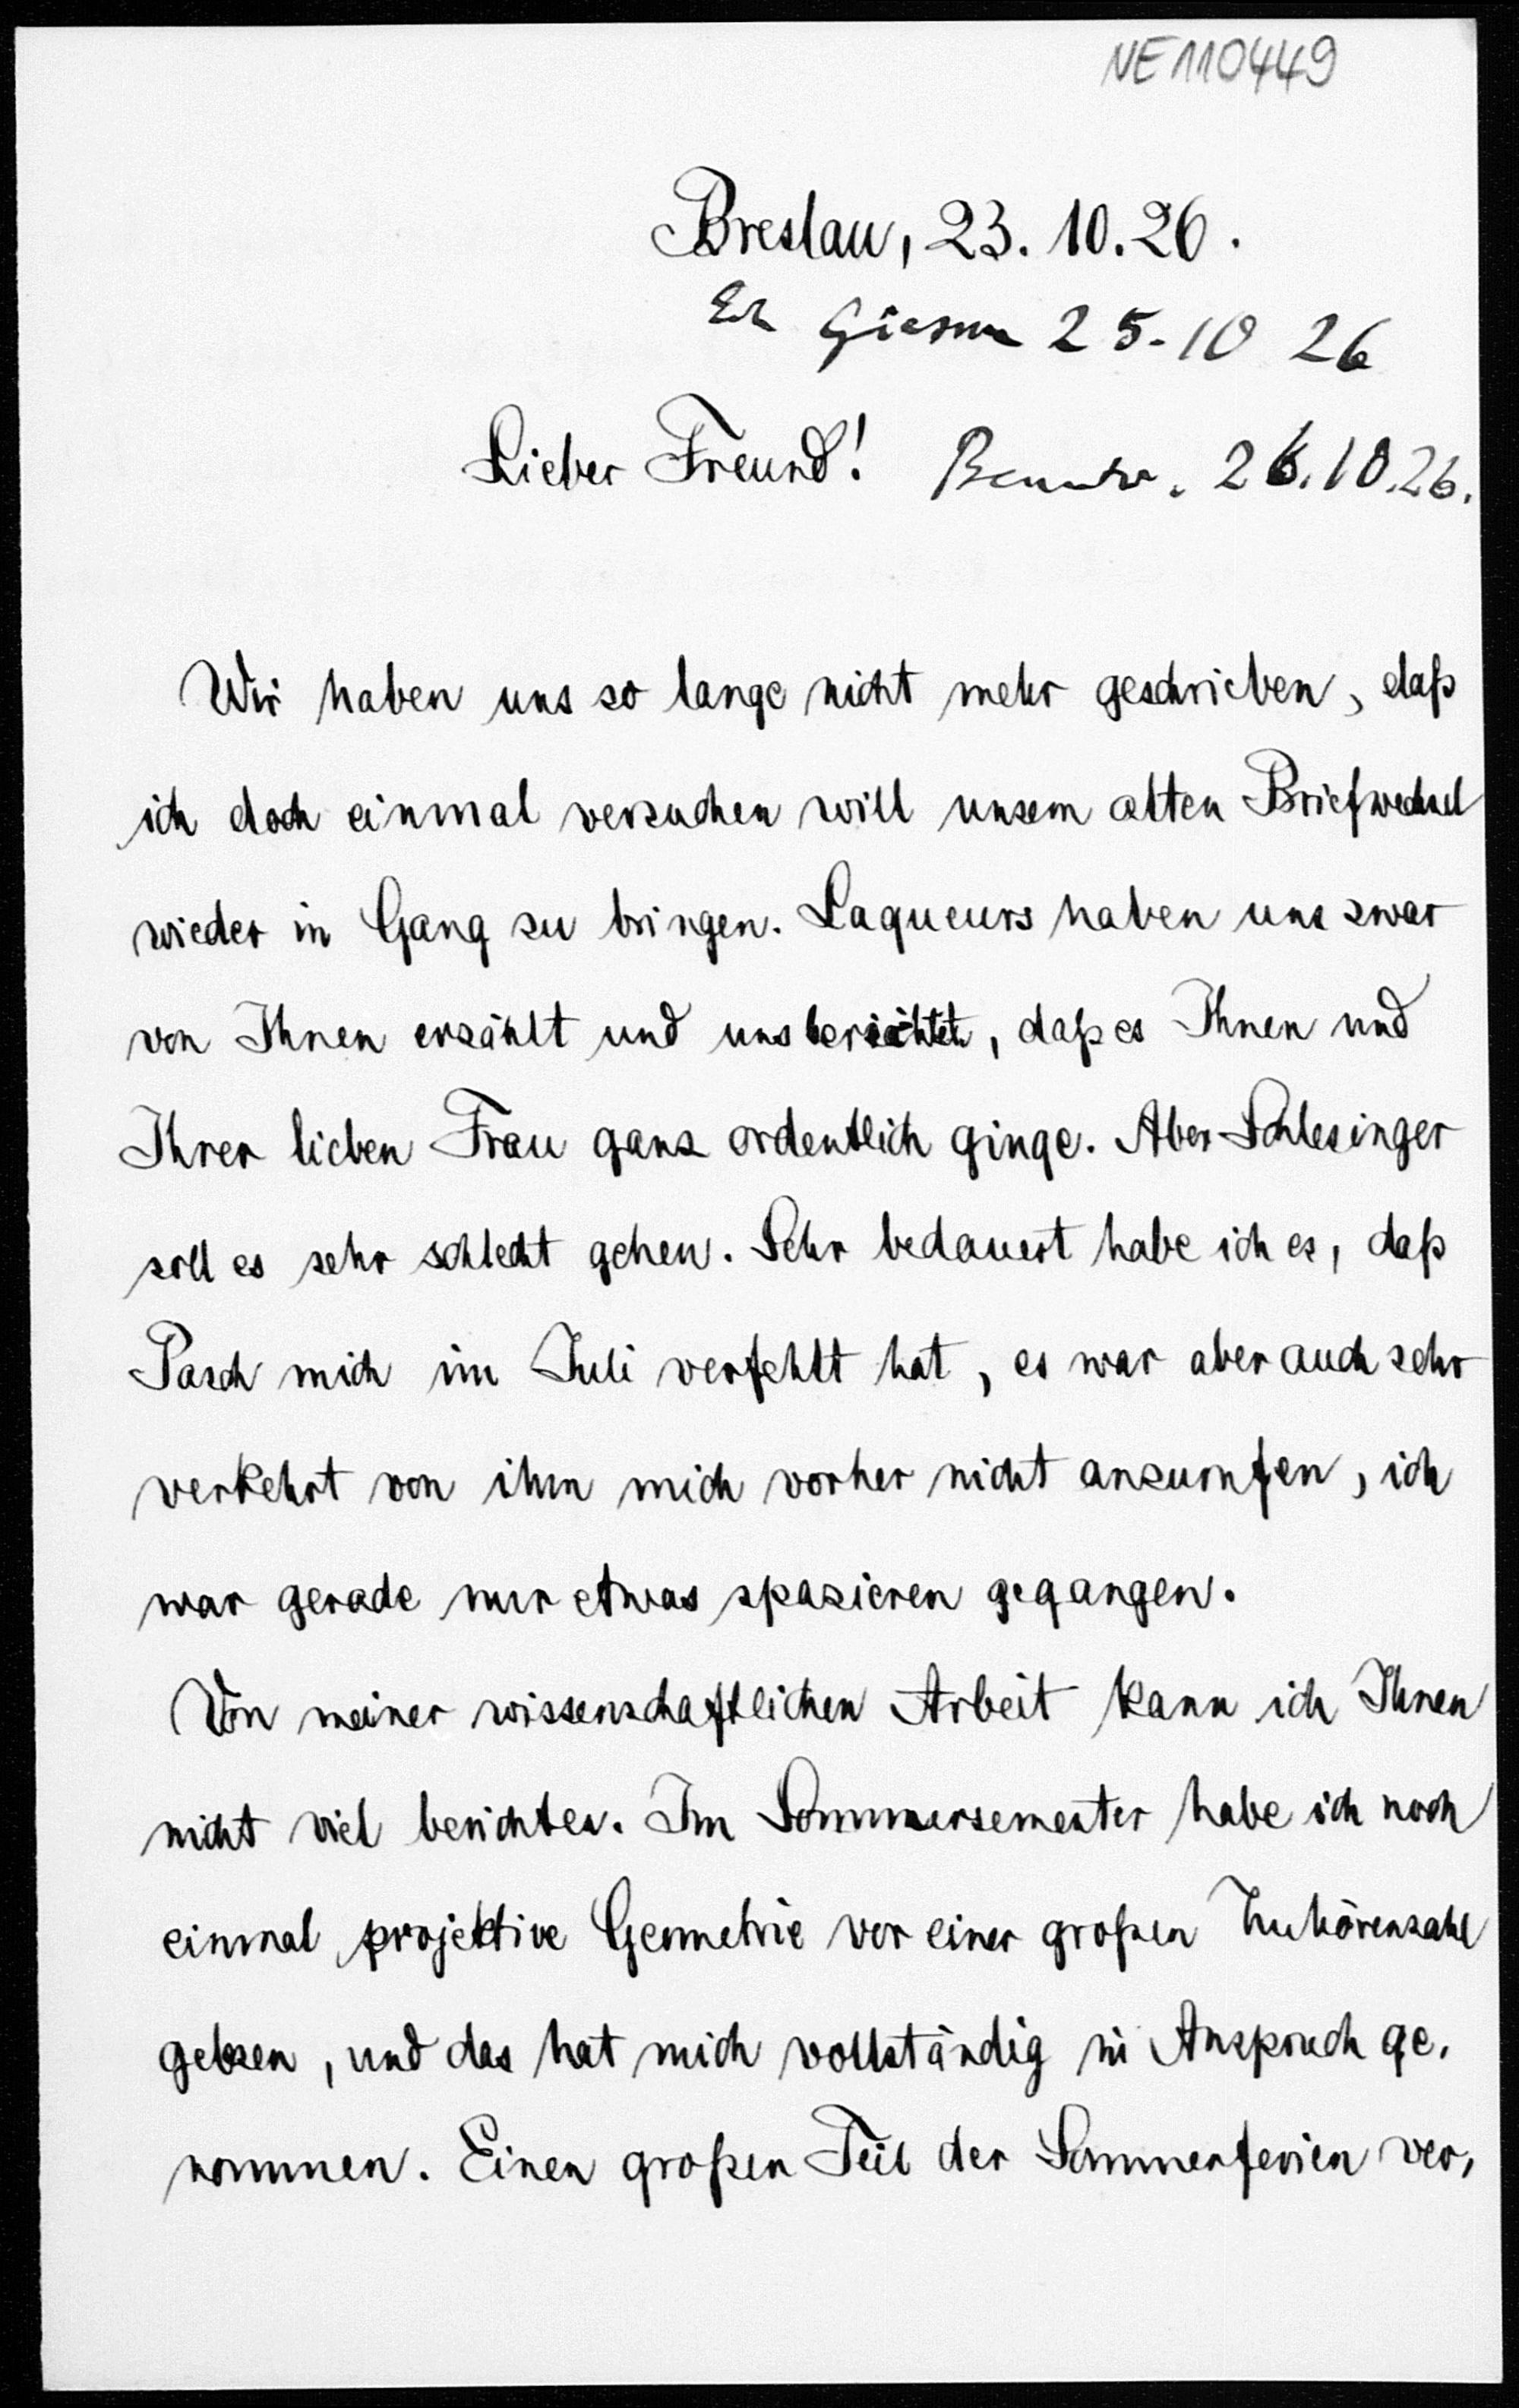 NE110449
Breslau, 23. 10. 26.
Giessen 25-10 26
Lieber Freund! Beantw. 26.10.26.
Wir haben uns so lange nicht mehr geschrieben, daß
ich doch einmal versuchen will unsern alten Briefwechsel
wieder in Gang zu bringen. Laqueurs haben uns zwar
von Ihnen erzählt und uns berichtet, daß es Ihnen und
Ihrer lieben Frau ganz ordentlich ginge. Aber Schlesinger
soll es sehr schlecht gehen. Sehr bedauert habe ich es, daß
Pasch mich im Juli verfehlt hat, es war aber auch sehr
verkehrt von ihm mich vorher nicht anzurufen, ich
war gerade nur etwas spazieren gegangen.
Von meiner wissenschaftlichen Arbeit kann ich Ihnen
nicht viel berichten. Im Sommersemester habe ich noch
einmal projektive Geometrie vor einer großen Zuhörerzahl
gelesen, und das hat mich vollständig in Anspruch ge,
nommen. Einen großen Teil der Sommerferien ver,